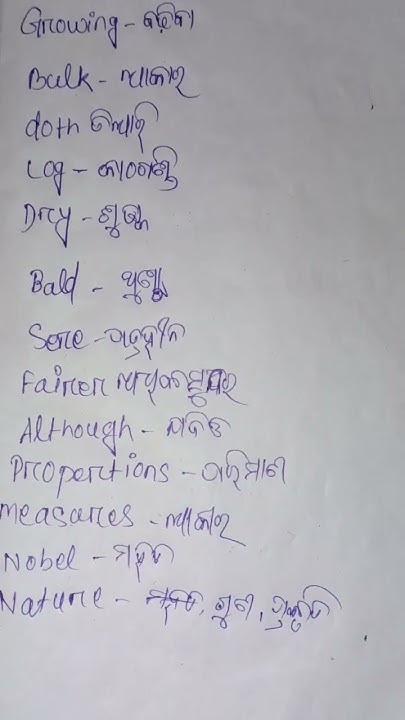 Growing - ବଢ଼ିବା
Bulk - ଆକାର
doth ତିଆରି
Log - କାଠଗଣ୍ଡି
Dry - ଶୁଖିଲା
Bald -
Sere - ପତ୍ରହୀନ
Fairer ଅଧିକ ସୁନ୍ଦର
Although - ଯଦିଓ
Propertions - ପରିମାଣ
measares - ଆକାର
Nobel - ମହତ
Nature - ଗୁଣ, ପ୍ରକୃତି